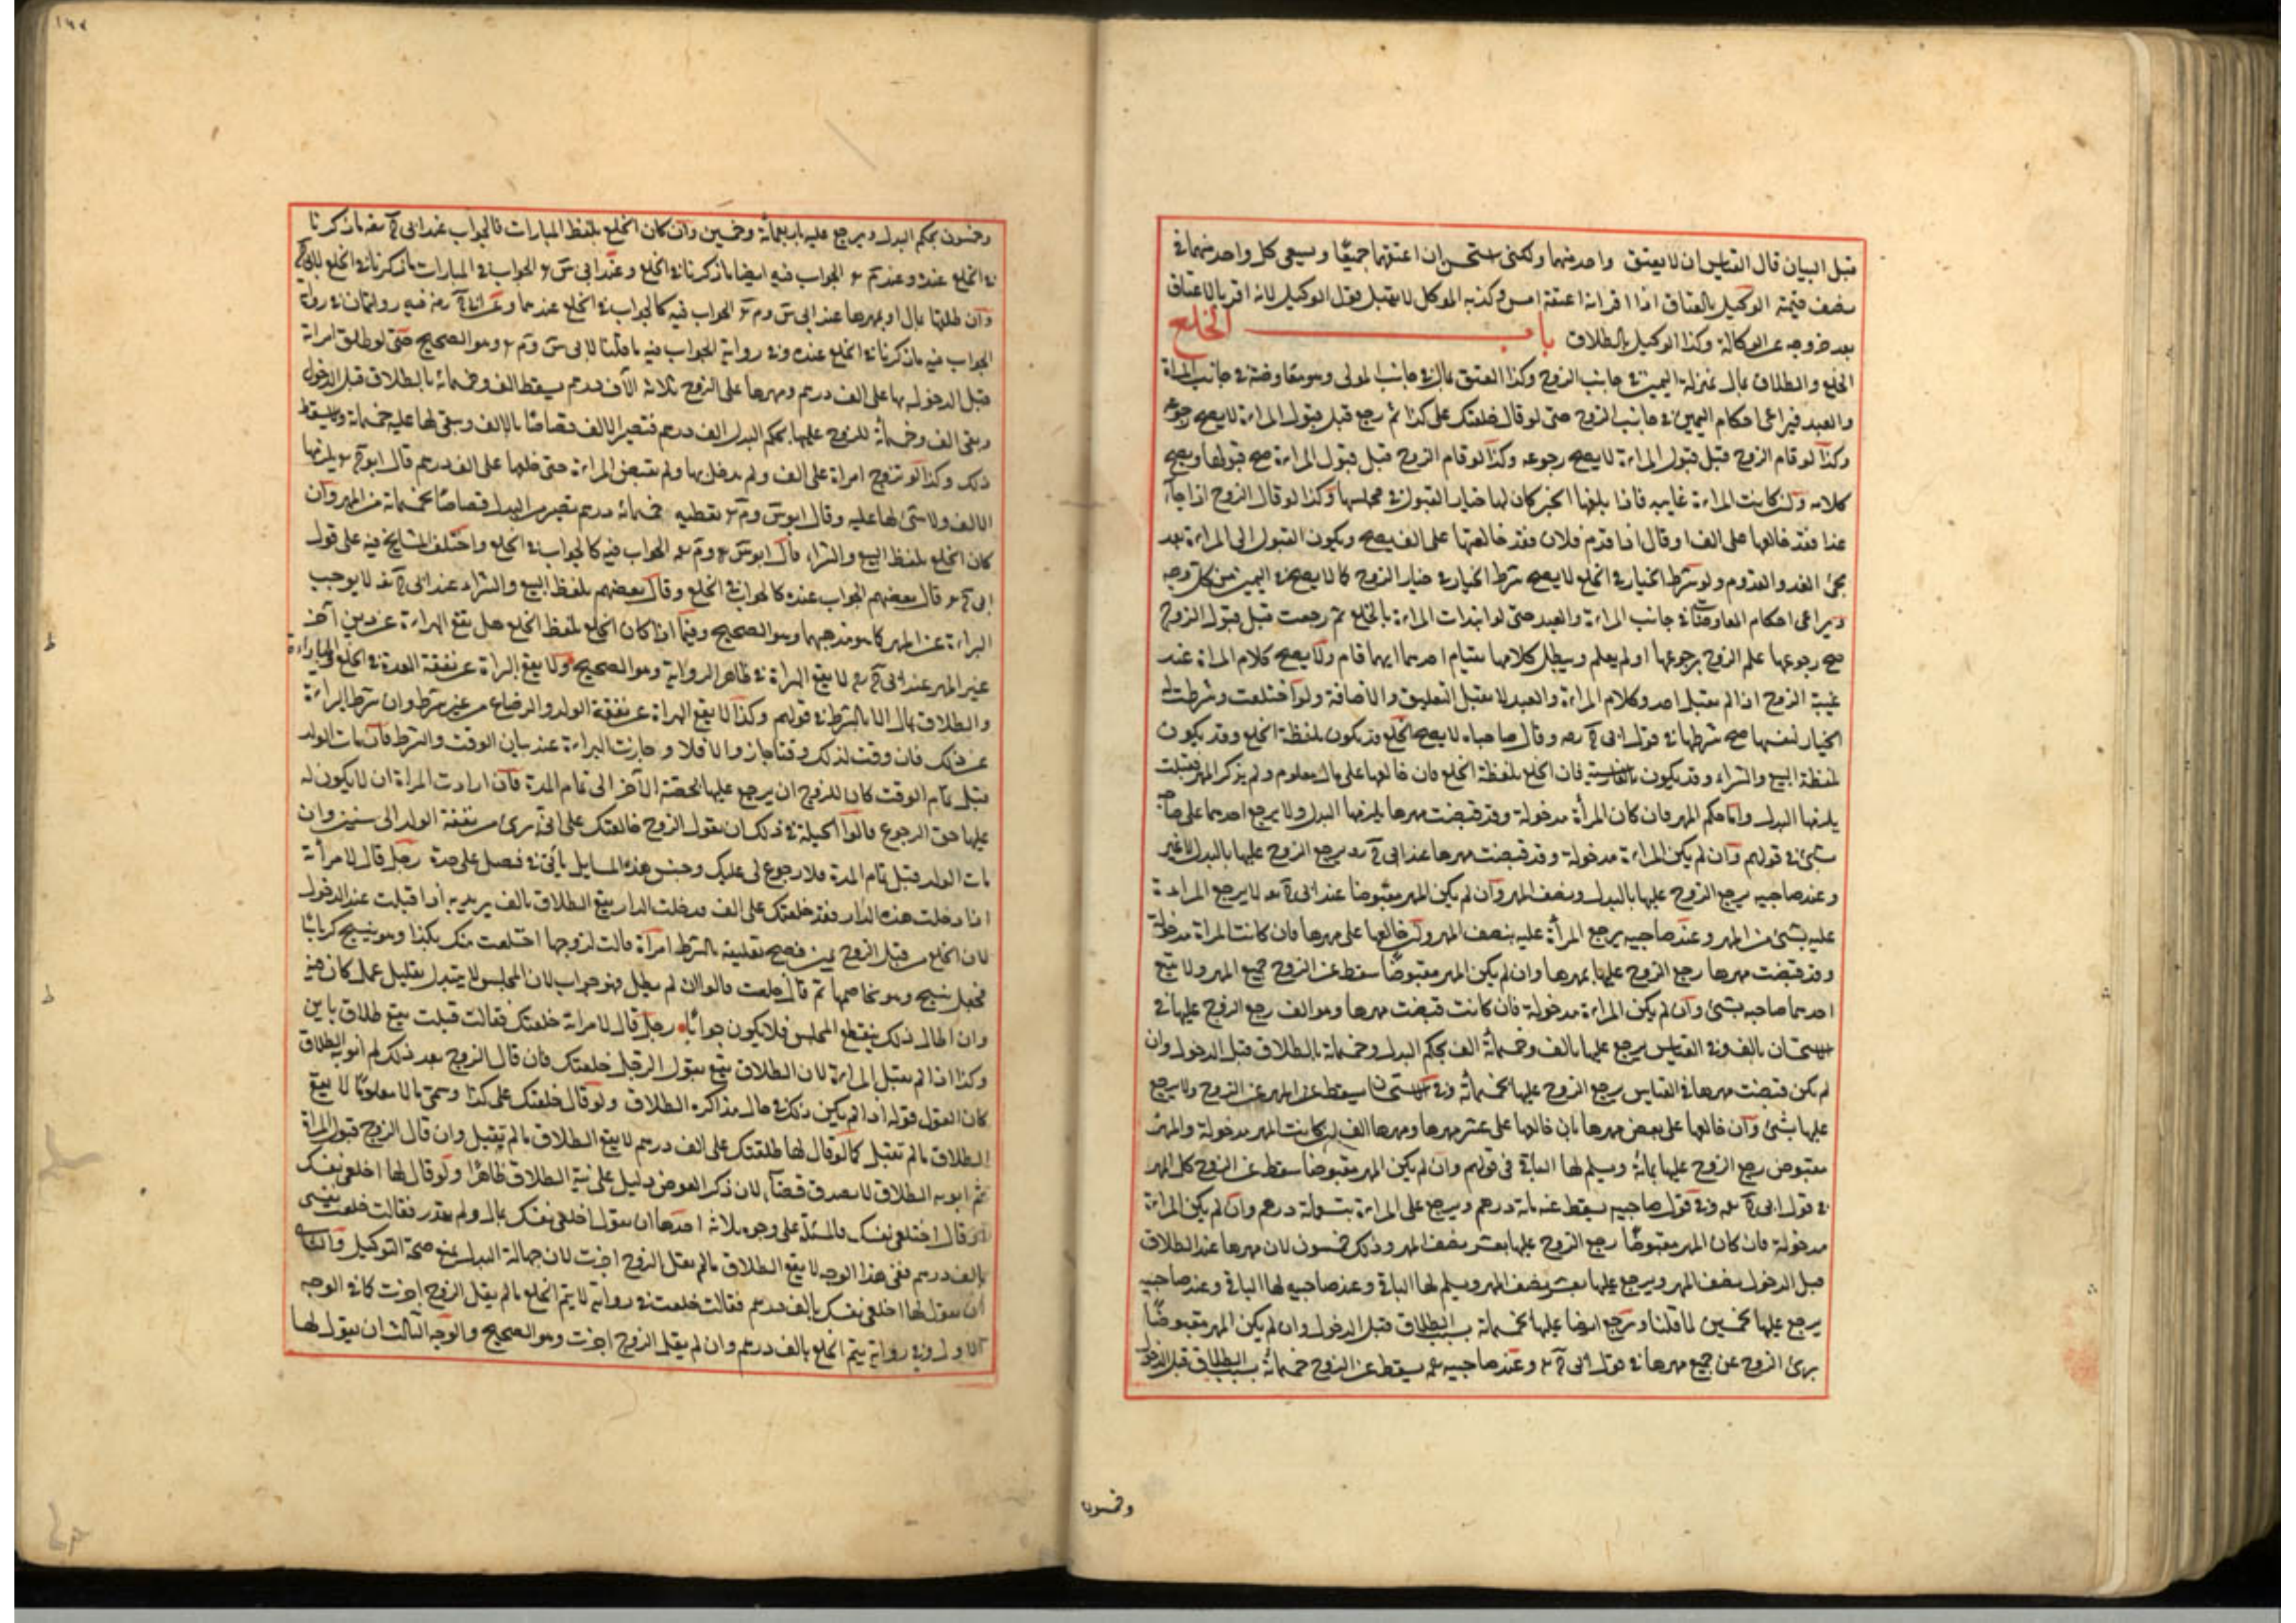 قبل البيان قال القياس ان لا يعتق واحد منهما ولكنى استحسن ان اعتقهما جميعًا ويسعى كل واحد منهما فى
نصف قيمته الوكيل بالعتاق اذا اقر انه اعتقه امس وكذبه الموكل لا يقبل قول الوكيل لانه اقر بالاعتاق
بعد خروجه عن الوكالة وكذا الوكيل بالطلاق باب الخلع
الخلع والطلاق بمال بمنزلة اليمين فى جانب الزوج وكذا العتق بمال فى جانب المولى وهو معاوضة فى جانب المراة
والعبد فيراعى احكام اليمين فى جانب الزوج حتى لو قال خلعتك على كذا ثم رجع قبل قبول المراءة لا يصح رجوعه
وكذا لو قام الزوج قبل قبول المراءة لا يصح رجوعه وكذا لو قام الزوج قبل قبول المراءة صح قبولها ويصح
كلامه وان كانت المراءة غايبه فاذا بلغها الخبر كان لها خيار القبول فى مجلسها وكذا لو قال الزوج اذا جاء
غدا فقد خالعها على الف او قال اذا قدم فلان فقد خالعتها على الف يصح ويكون القبول الى المراءة بعد
مجئ الغد والقدوم ولو شرط الخيار فى الخلع لا يصح شرط الخيار فى خيار الزوج كما لا يصح فى اليمين من كل وجه
ويراعى احكام المعاوضات فى جانب المراءة والعبد حتى لو ابتدات المراءة بالخلع ثم رجعت قبل قبول الزوج
صح رجوعها علم الزوج برجوعها او لم يعلم ويبطل كلامها بقيام احدهما ايهما قام ولا يصح كلام المراة عند
غيبة الزوج اذا لم يقبل احد وكلام المراءة والعبد لا يقبل التعليق والاضافة ولو اختلعت وشرطت
الخيار لنفسها صح شرطها فى قول ابى ح رحه وقال صاحباه لا يصح الخلع قد يكون بلفظة الخلع وقد يكون
بلفظة البيع والشراء وقد يكون بالفارسية فان الخلع بلفظة الخلع فان خالعها على مال معلوم ولم يذكر المهر فقبلت
يلزمها البدل واما حكم المهر فان كان المرأة مدخولة وقد قبضت مهرها يلزمها البدل ولا يرجع احدهما على صاحبه
بشئ فى قولهم وان لم يكن المراءة مدخولة وقد قبضت مهرها عند ابى ح يرجع الزوج عليها بالبدل لا غير
وعند صاحبيه يرجع الزوج عليها بالبدل ونصف المهر وان لم يكن المهر مقبوضا عند ابى ح لا يرجع المراءة
عليه بشئ من المهر وعند صاحبيه يرجع المرأة عليه بنصف المهر ولو خالعها على مهرها فان كانت المراة مدخولة
وقد قبضت مهرها رجع الزوج عليها بمهرها وان لم يكن المهر مقبوضًا سقط عن الزوج جميع المهر ولا يتبع
احدهما صاحبه بشئ وان لم يكن المراءة مدخولة فان كانت قبضت مهرها وهو الف رجع الزوج عليها فى
الاستحسان بالف وفى القياس يرجع عليها بالف وخمسمائة الف بحكم البدل وخمسمائة بالطلاق قبل الدخول وان
لم يكن قبضت مهرها فى القياس يرجع الزوج عليها بخمسمائة وفى الاستحسان يسقط عن المهر عن الزوج ولا يرجع
عليها بشئ وان خالعها على بعض مهرها بان خالعها على عشر مهرها ومهرها الف ان كانت المهر مدخولة والمهر
مقبوض رجع الزوج عليها بمائة ويسلم لها الباقى فى قولهم وان لم يكن المهر مقبوضا سقط عن الزوج كل المهر
فى قول ابى ح وفى قول صاحبيه يسقط عنه مائة درهم ويرجع على المراءة بتسعمائة درهم وان لم يكن المراءة
مدخولة فان كان المهر مقبوضًا رجع الزوج عليها بعشر نصف المهر وذلك خمسون لان مهرها عند الطلاق
قبل الدخول نصف المهر ويرجع عليها بعشر نصف المهر ويسلم لها الباقى وعند صاحبيه لها الباقى وعند صاحبيه
يرجع عليها بخمسين لما قلنا ويرجع ايضا عليها بخمسمائة بسبب الطلاق قبل الدخول وان لم يكن المهر مقبوضًا
برئ الزوج عن جميع مهرها فى قول ابى ح وعند صاحبيه يسقط عن الزوج خمسمائة بسبب الطلاق قبل الدخول
وخمسون
وخمسون بحكم البدل ويرجع عليه باربعمائة وخمسين وان كان الخلع بلفظ المبارات فالجواب عند ابى ح ما ذكرنا
فى الخلع عنده وعند م الجواب فيه ايضا ما ذكرنا فى الخلع وعند ابى س الجواب فى المبارات ما ذكرنا فى الخلع
وان طلقها بمال او بمهرها عند ابى س وم الجواب فيه كالجواب فى الخلع عندهما وعن ابى ح فيه روايتان فى رواية
الجواب فيه ما ذكرنا فى الخلع عنده وفى رواية الجواب فيه ما قلنا لابى س وم وهو الصحيح حتى لو طلق امراة
قبل الدخول بها على الف درهم ومهرها على الزوج ثلاثة الاف درهم يسقط الف وخمسمائة بالطلاق قبل الدخول
وبقى الف وخمسمائة للزوج عليها بحكم البدل الف درهم فتصير الالف قصاصًا بالالف وبقى لها عليه خمسمائة ولا يسقط
ذلك وكذا لو تزوج امراة على الف ولم يدخل بها ولم تقبض المراءة حتى خلعها على الف درهم قال ابو ح يلزمها
الالف ولا شئ لها عليه وقال ابو س وم تعطيه خمسمائة درهم تصير من البدل قصاصًا بخمسمائة من المهر وان
كان الخلع بلفظ البيع والشراء قال ابو س وم الجواب فيه كالجواب فى الخلع واختلف المشايخ فيه على قول
ابى ح قال بعضهم الجواب عنده كالجواب فى الخلع وقال بعضهم بلفظ البيع والشراء عند ابى ح لا يوجب
البراءة عن المهر كما هو مذهبهما وهو الصحيح وفيما اذا كان الخلع بلفظ الخلع هل تقع البراءة عن دين آخر
غير المهر عند ابى ح لا يقع البراة فى ظاهر الرواية وهو الصحيح ولا يقع البراة عن نفقة العدة فى الخلع والمباراءة
والطلاق بمال الا بالشرط فى قولهم وكذا لا يقع البراة عن نفقة الولد والرضاع من غير شرط وان شرط البراءة
عن ذلك فان وقت لذلك وقتا جاز والا فلا وجازت البراءة عند بيان الوقت والشرط فان مات الولد
قبل تمام الوقت كان للزوج ان يرجع عليها بحصته الآخر الى تمام المدة فان ارادت المراة ان لا يكون له
عليها حق الرجوع قالوا الحيلة فى ذلك ان يقول الزوج خالعتك على انى برئ من نفقة الولد الى سنتين وان
مات الولد قبل تمام المدة فلا رجوع لى عليك وجنس هذه المسايل يأتى فى فصل على حدة رجل قال لامرأته
اذا دخلت هذه الدار فقد خلعتك على الف فدخلت الدار يقع الطلاق بالف يريد به اذا قبلت عند الدخول
لان الخلع من قبل الزوج يمين فصح تعليقه بالشرط امرأة قالت لزوجها اختلعت منك بكذا وهو ينسج كرباسًا
فجعل ينسج وهو يخاصمها ثم قال خلعت قالوا ان لم يطل فهو جواب لان المجلس لا يتبدل بقليل عمل كان فيه
وان اطال ذلك ينقطع المجلس فلا يكون جوابًا رجل قال لامراته خلعتك فقالت قبلت يقع طلاق باين
وكذا اذا لم يقبل المراءة لان الطلاق يقع بقول الرجل خلعتك فان قال الزوج بعد ذلك لم انو به الطلاق
كان القول قوله اذا لم يكن ذلك فى حال مذاكره الطلاق ولو قال خلعتك على كذا وسمى مالا معلومًا لا يقع
الطلاق ما لم تقبل كما لو قال لها طلقتك على الف درهم لا يقع الطلاق ما لم يقبل وان قال الزوج قبول المراة
لم انو به الطلاق لا يصدق قضاء لان ذكر العوض دليل على نية الطلاق ظاهرًا ولو قال لها اخلعى نفسك
او قال اختلعى نفسك فالمسئلة على وجوه ثلاثة احدها ان يقول اخلعى نفسك بمال ولم يقدر فقالت خلعت نفسى
بالف درهم ففى هذا الوجه لا يقع الطلاق ما لم يقل الزوج اجزت لان جهالة البدل يمنع صحة التوكيل والثانى
ان يقول لها اخلعى نفسك بالف درهم فقالت خلعت فى رواية لا يتم الخلع ما لم يقل الزوج اجزت كما فى الوجه
الاول وفى رواية يتم الخلع بالف درهم وان لم يقل الزوج اجزت وهو الصحيح والوجه الثالث ان يقول لها